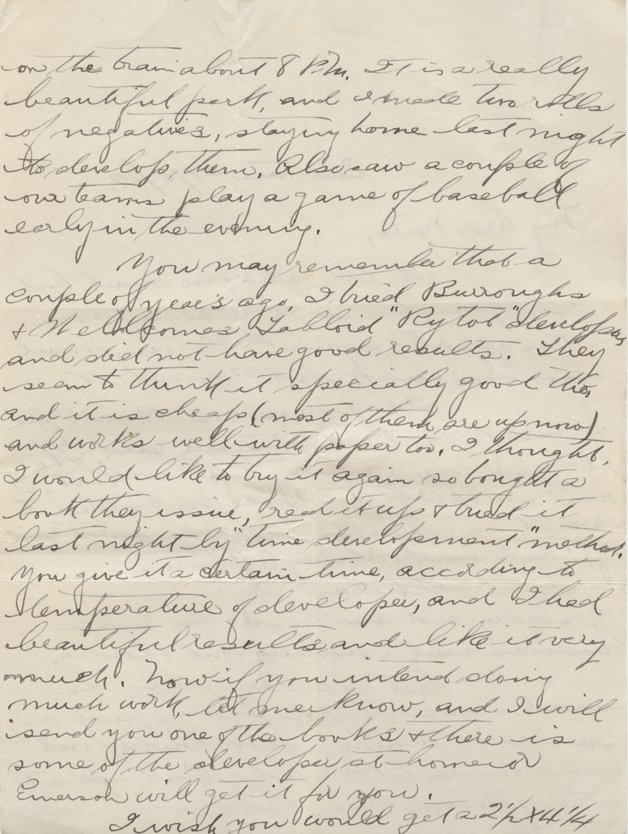 on the train about 8 P.M. It is a really
beautiful park, and I made two rolls
of negatives, staying home last night
to develop them. Also saw a couple of
our teams play a game of baseball
early in the evening.
You may remember that a
couple of years ago, I tried Burroughs
& Wellcomes Tabloid "Rytol" developer,
and did not have good results. They
seem to think it specially good tho,
and it is cheap (most of them are up now)
and works well with paper too. I thought,
I would like to try it again so bought a
book they issue, read it up & tried it
last night by "time development" method.
You give it a certain time, according to
temperature of developer, and I had
beautiful results and like it very
much. Now if you intend doing
much work, let me know, and I will
send you one of the books & there is
some of the developer at home or
Emerson will get it for you.
I wish you would get a 2½ x 4¼